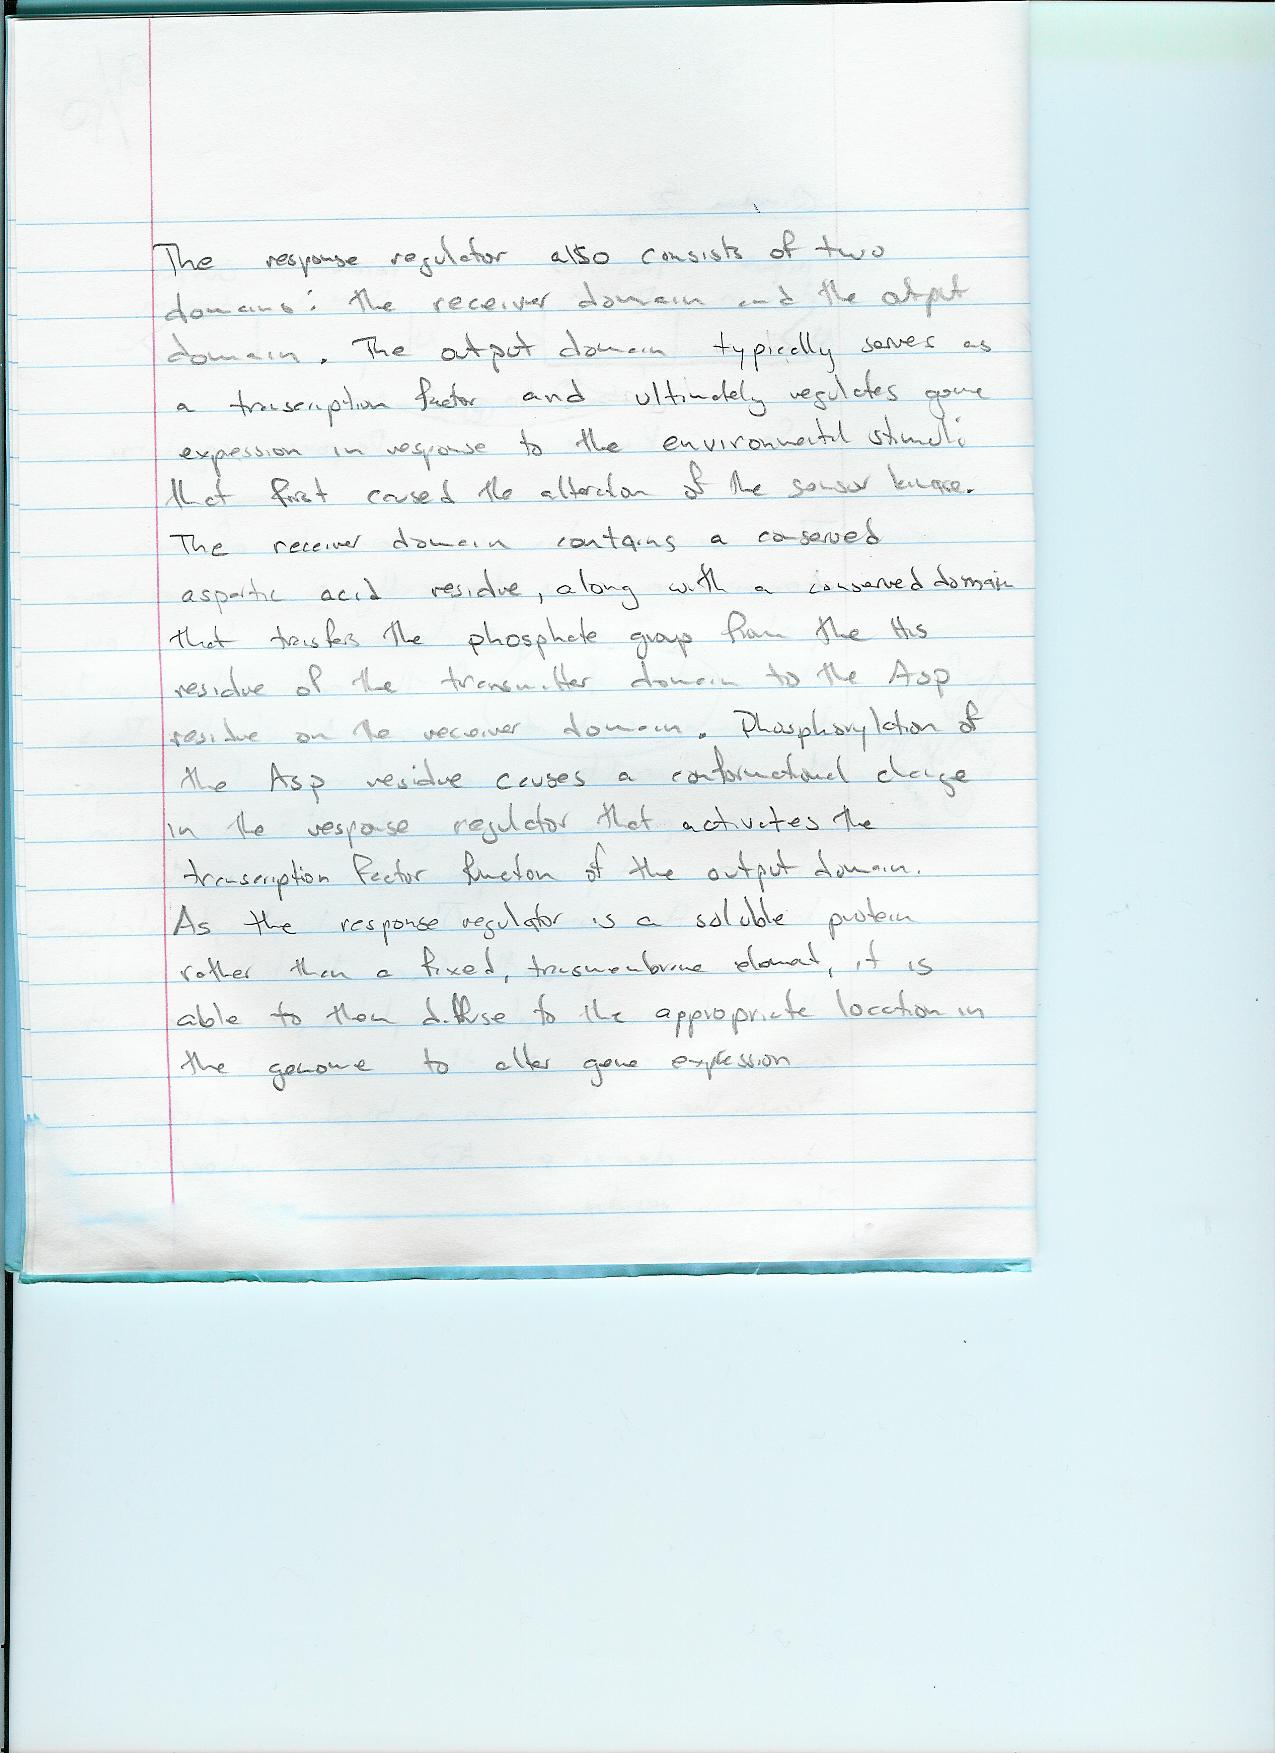 The response regulator also consists of two
domains: the receiver domain and the output
domain. The output domain typically serves as
a transcription factor and ultimately regulates gene
expression in response to the environmental stimuli
that first caused the alteration of the sensor kinase.
The receiver domain contains a conserved
aspartic acid residue, along with a conserved domain
that transfers the phosphate group from the His
residue of the transmitter domain to the Asp
residue on the receiver domain. Phosphorylation of
the Asp residue causes a conformational change
in the response regulator that activates the
transcription factor function of the output domain.
As the response regulator is a soluble protein
rather than a fixed, transmembrane element, it is
able to then diffuse to the appropriate location in
the genome to alter gene expression